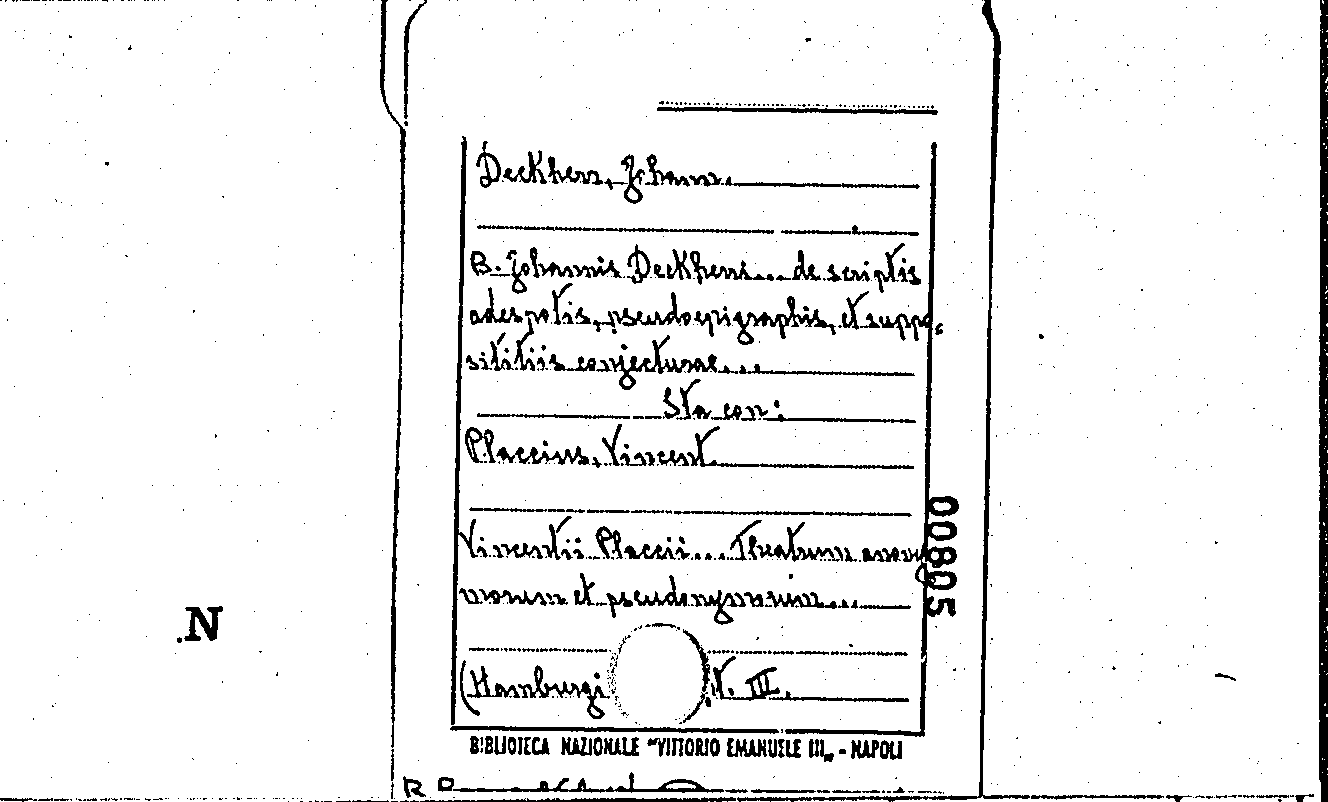 Deckherr, Johann.
B. Johannis Deckherri... de scriptis
adespotis, pseudoepigraphis, et suppo-
sititiis conjecturae...
Sta con:
Placcius, Vincent.
Vincentii Placcii... Theatrum anony
morum et pseudonymorum...
(Hamburgi t. III.
00805
N
BIBLIOTECA NAZIONALE "VITTORIO EMANUELE III„ - NAPOLI
R